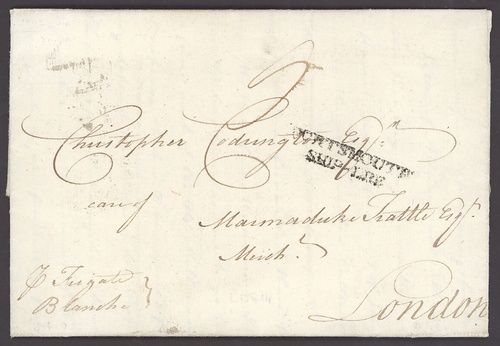 Christopher Codrington Esqr.
PORTSMOUTH
SHIP LRE
care of
Marmaduke Trattle Esqr.
Merch.
London
P Frigate
Blanche